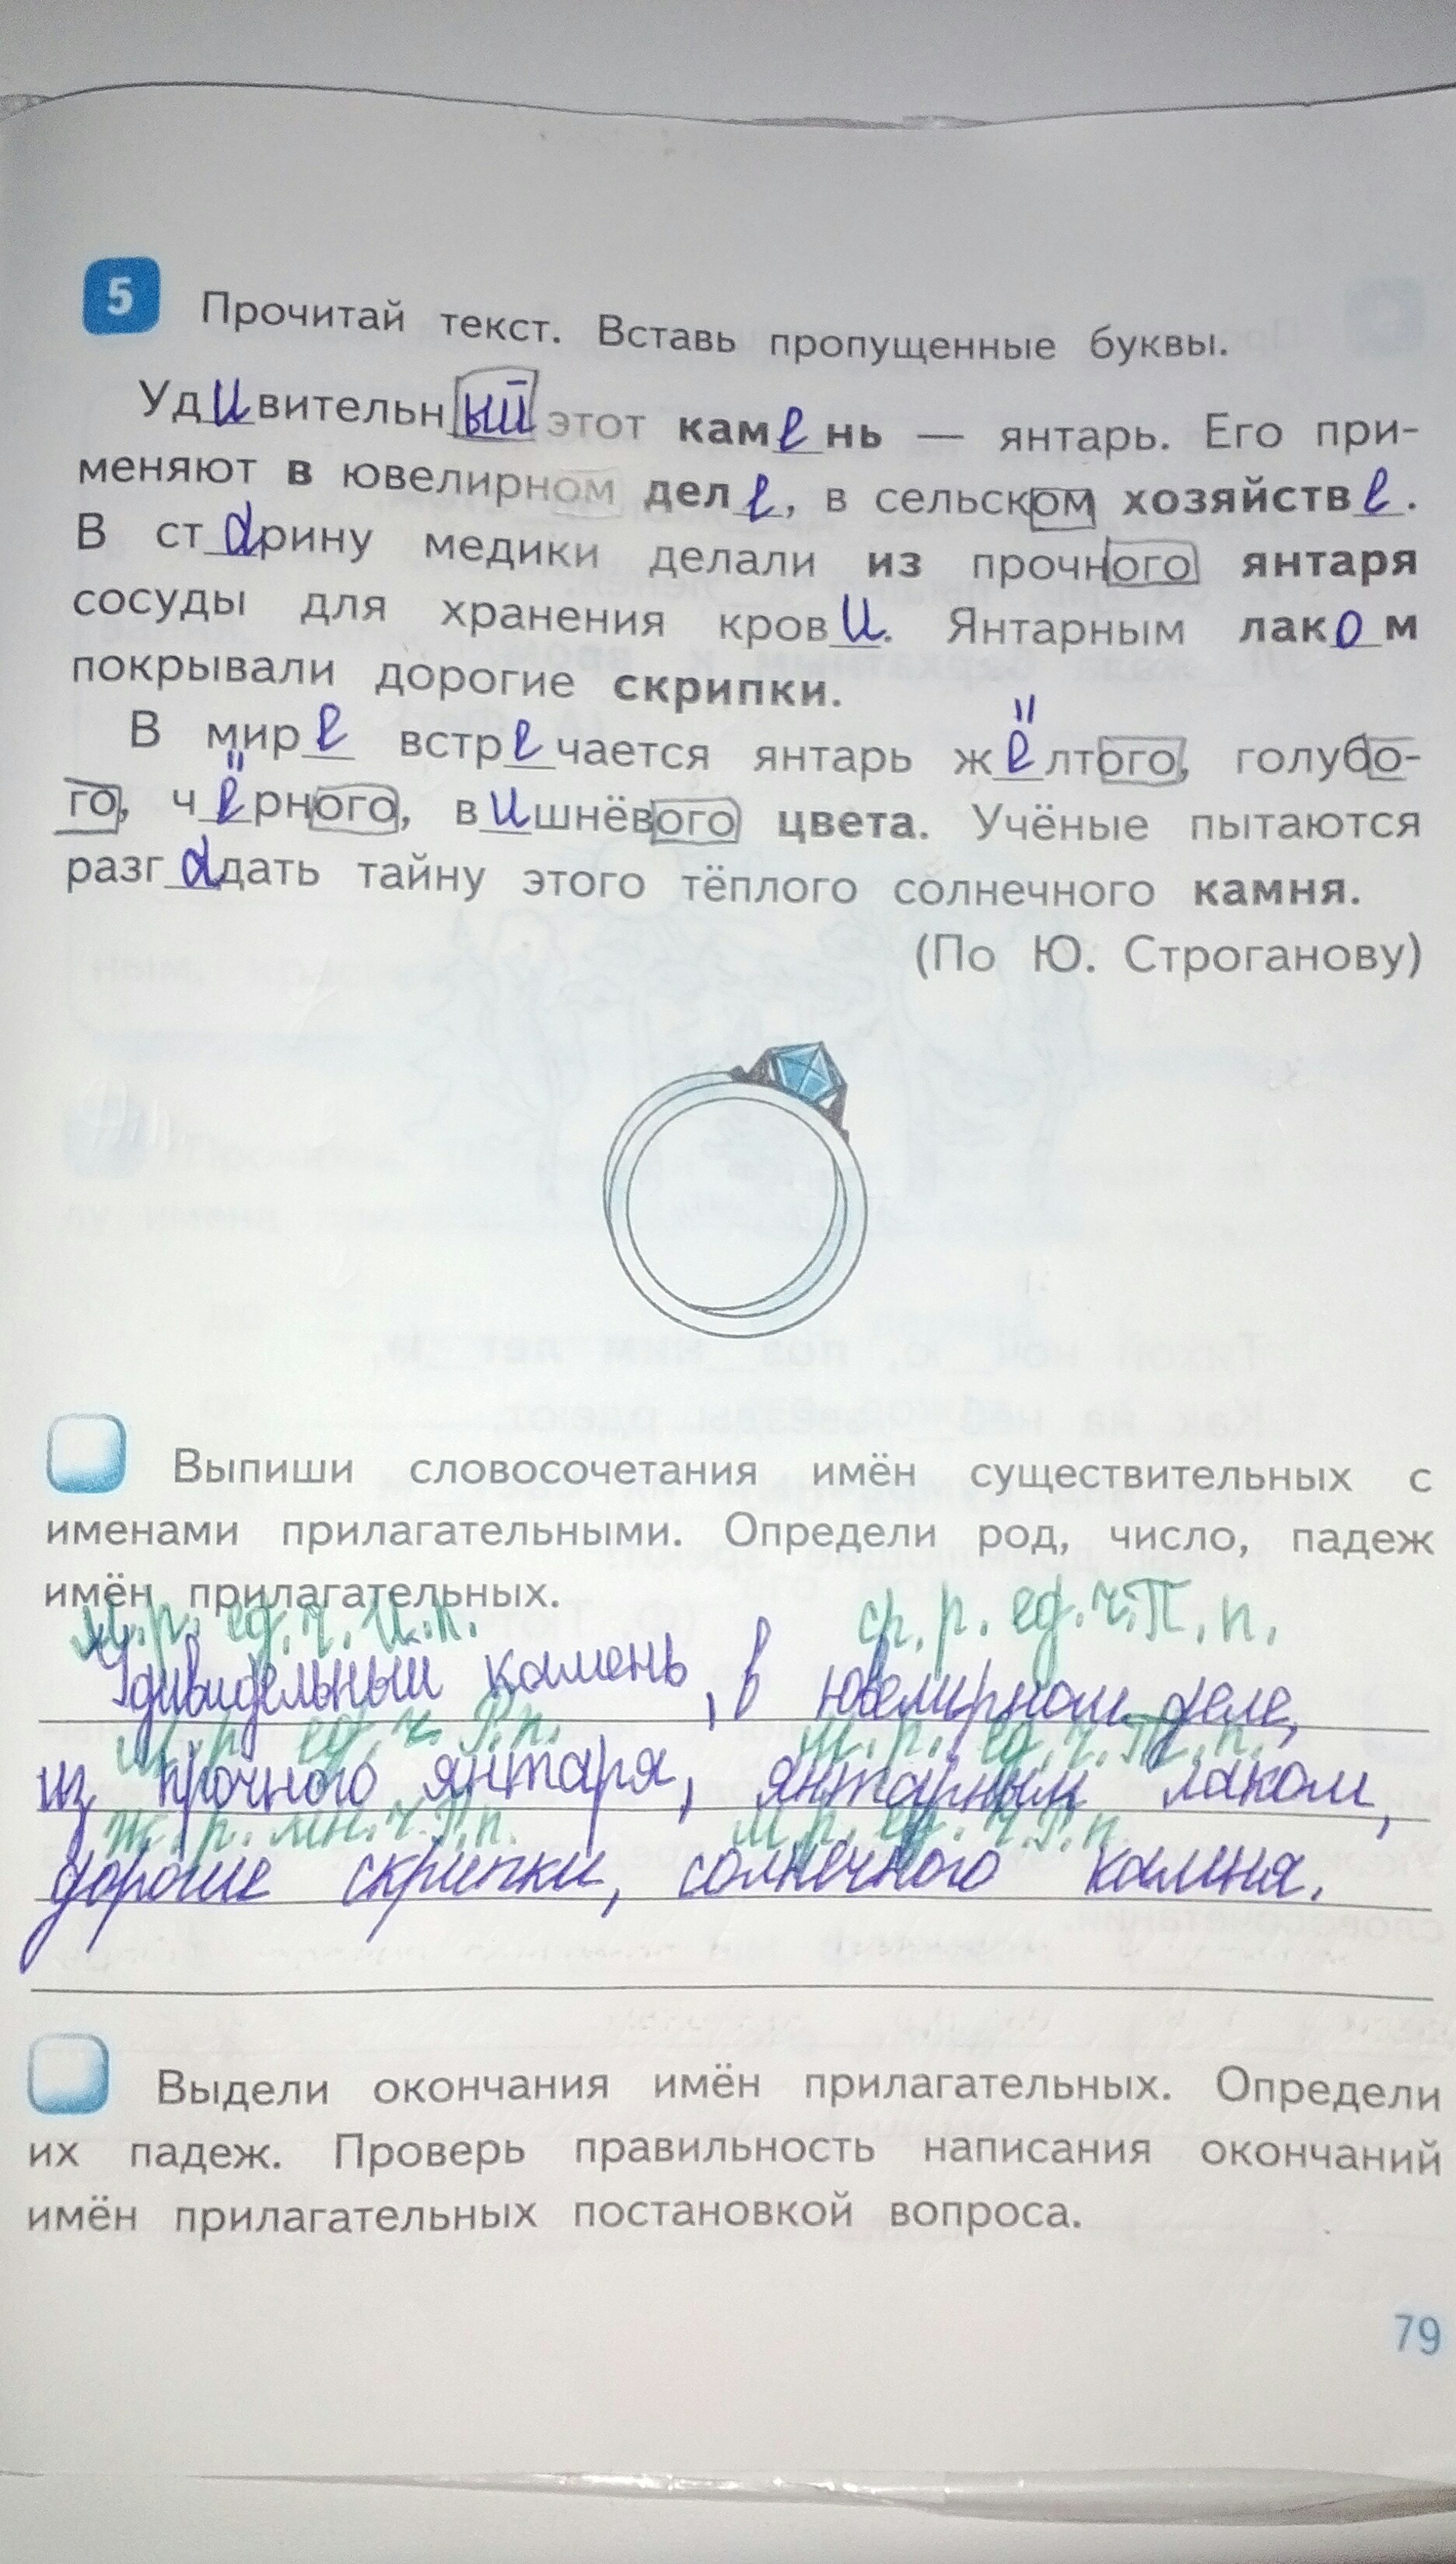 5 Прочитай текст. Вставь пропущенные буквы.
Удивительный этот камень — янтарь. Его при-
меняют в ювелирном деле, в сельском хозяйстве.
В старину медики делали из прочного янтаря
сосуды для хранения крови. Янтарным лаком
покрывали дорогие скрипки.
В мире встречается янтарь жёлтого, голубо-
го, чёрного, вишнёвого цвета. Учёные пытаются
разгадать тайну этого тёплого солнечного камня.
(По Ю. Строганову)
Выпиши словосочетания имён существительных с
именами прилагательными. Определи род, число, падеж
имён прилагательных.
м.р. ед.ч. И.п. ср.р. ед.ч. П.п.
Удивидельный камень, в ювелирном деле,
м.р. ед.ч. Р.п. м.р. ед.ч. Т.п.
из прочного янтаря, янтарным лаком,
ж.р. мн.ч. Р.п. м.р. ед.ч. Р.п.
дорогие скрипки, солнечного камня.
Выдели окончания имён прилагательных. Определи
их падеж. Проверь правильность написания окончаний
имён прилагательных постановкой вопроса.
79